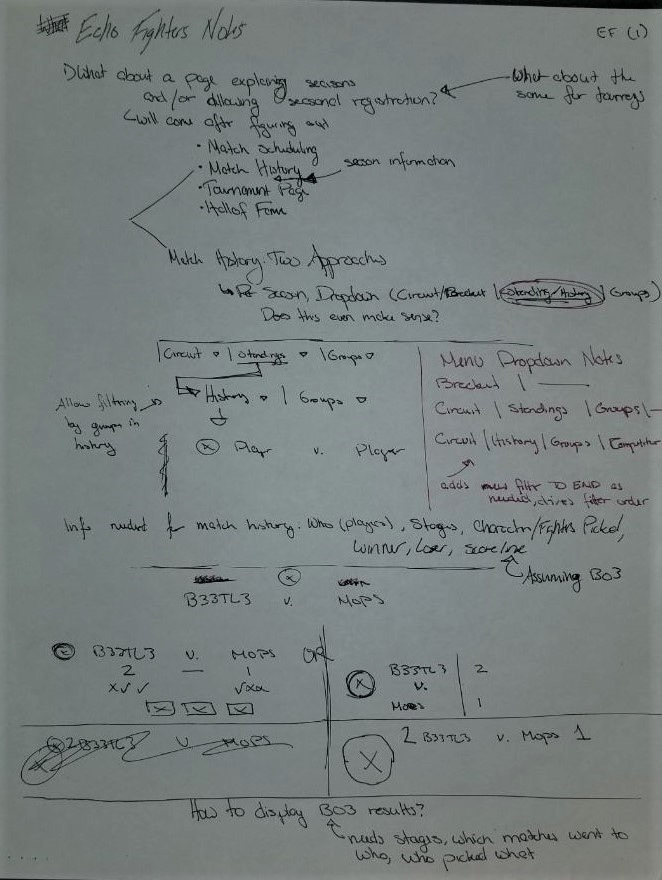 Echo Fighters Notes
EF (1)
1) What about a page explaining seasons
and/or allowing seasonal registration?
What about the
same for tourneys
will come after figuring out
• Match scheduling
• Match History
season information
• Tournament Page
• Hall of Fame
Match History: Two Approaches
Per Season, Dropdown (Circuit/Bracket | Standing/History | Groups)
Does this even make sense?
| Circuit | Standings | Groups
History | Groups
Allow filtering
by groups in
history
X Player v. Player
Menu Dropdown Notes
Bracket |
Circuit | Standings | Groups |
Circuit | History | Groups | Competitor
adds new filter TO END as
needed, drives filter order
Info needed for match history: Who (players), Stages, Character/Fighters Picked,
Winner, Loser, Scoreline
Assuming BO3
X
B33TL3 v. MOPS
B33TL3 v. MOPS
2 — 1
X√√ √XX
OR
X B33TL3 | 2
v.
Mops | 1
2 B33TL3 v MOPS
X 2 B33TL3 v. Mops 1
How to display BO3 results?
needs stages, which matches went to
who, who picked what